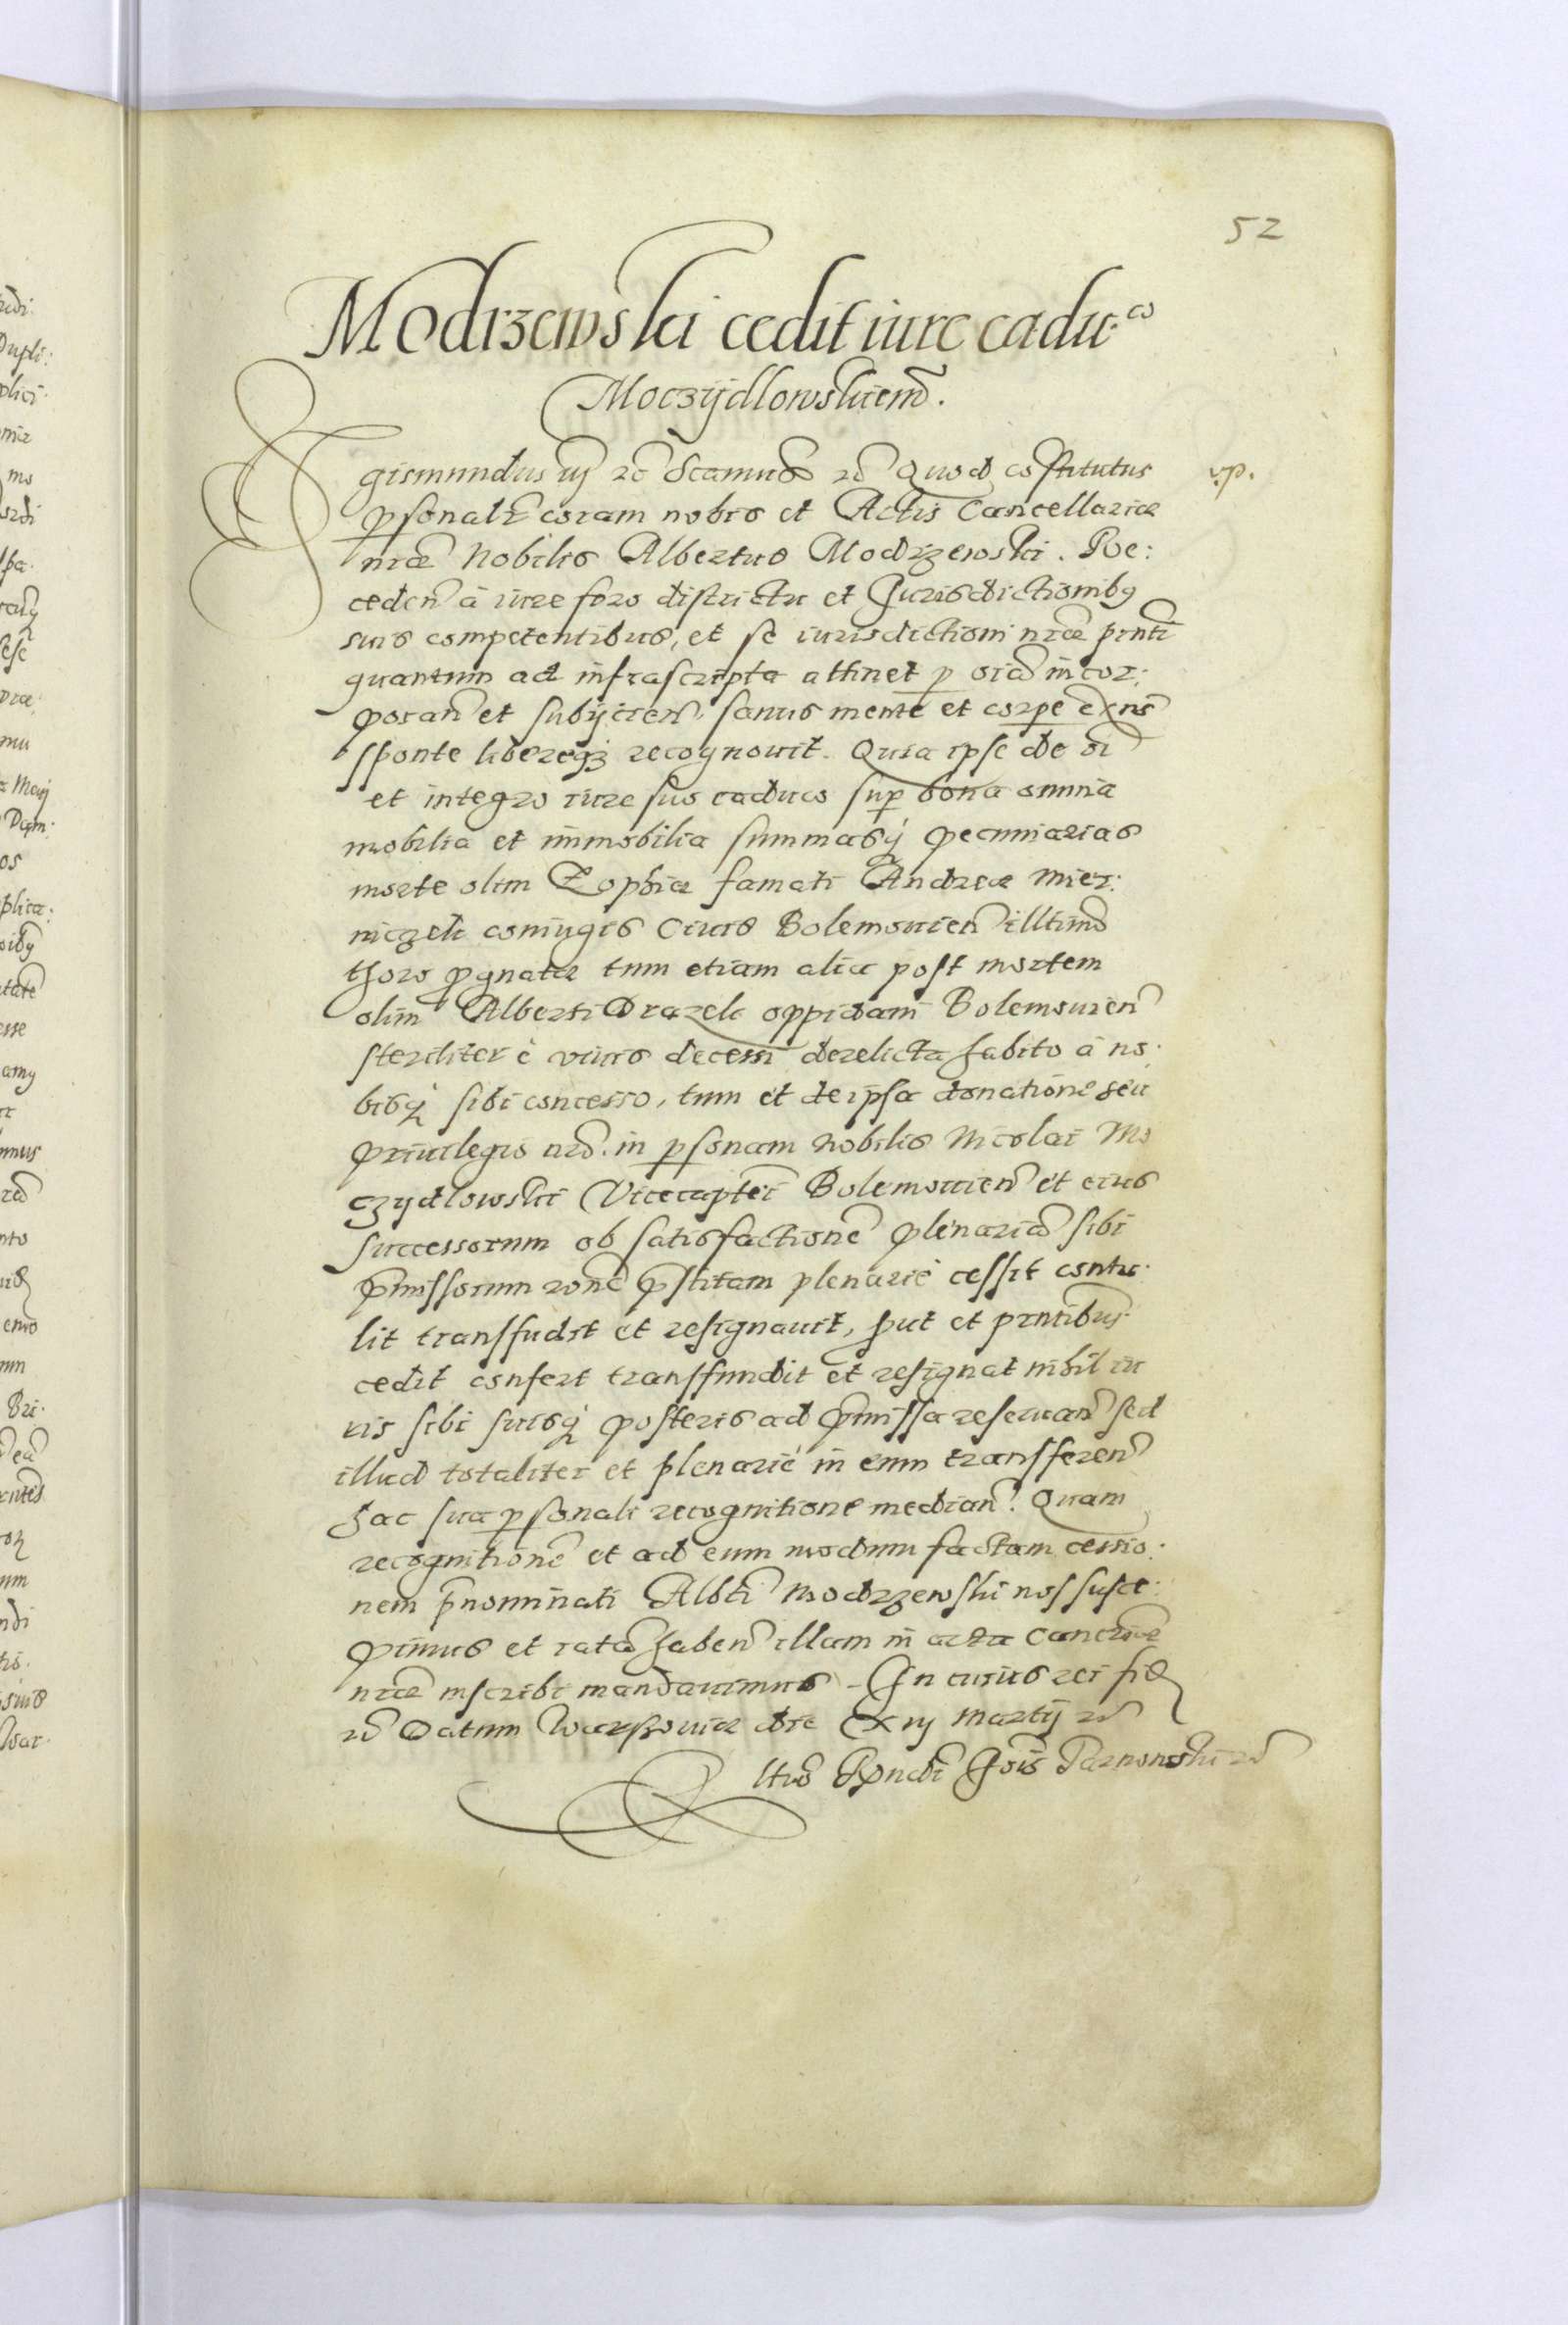 52
Modrzewski cedit iure caduco
Moczÿdlowskiem̃.
Sigismundus iij rc̃ Scamus rc̃ Quod cõstitutus
v.p.
ꝑsonalr̃ coram nobis et Actis Cancellariæ
nræ̃ Nobilis Albertus Modrzewski. Re:
ceden̄ à iure foro districtu et Jurisdictionibꝫ
suis competentibus, et se iurisdictioni nræ̃ prnti
quantum ad infrascripta attinet ꝑ oia incor:
poran̄ et subijcien̄, sanus mente et corpe exñs
sponte libereqꝫ recognovit. Quia ipse de oi
et integro iure suo caduco suꝑ bona omnia
mobilia et immobilia summasq́ pecuniarias
morte olim Zophiæ famati Andreæ Mier:
niczek coniugis Civis Bolemovien̄ illtimo
thoro ꝓgnatæ tum etiam alia post mortem
olim Alberti Drazek oppidani Bolemovien̄
steriliter è vivis decessi derelicta habito à no:
bisq́ sibi concesso, tum et de ipsa donatione seu
privilegio nrõ. in ꝑsonam Nobilis Nicolai Mo
czydlowski Vicecaptei Bolemovien̄ et eius
successorum ob satisfactionẽ plenariã sibi
p̃missorum ronẽ p̃stitam plenariè cessit contu:
lit transfudit et resignavit, ꝓut et prntibus
cedit confert transfundit et resignat nihil iu
ris sibi suisq́ posteris ad p̃missa reservan̄ sed
illud totaliter et plenariè in eum transferen̄
hac sua ꝑsonali recognitione median̄. Quam
recognitionẽ et ad eum modum factam cessio:
nem p̃nominati Albti Modrzewski nos susce:
pimus et ratã haben̄ illam in acta Cancriæ
nræ̃ inscribi mandavimus. In cuius rei fid̃
rc̃ Datum Warssoviæ die Martij rc̃
Rndi Jois Tarnowski rc̃